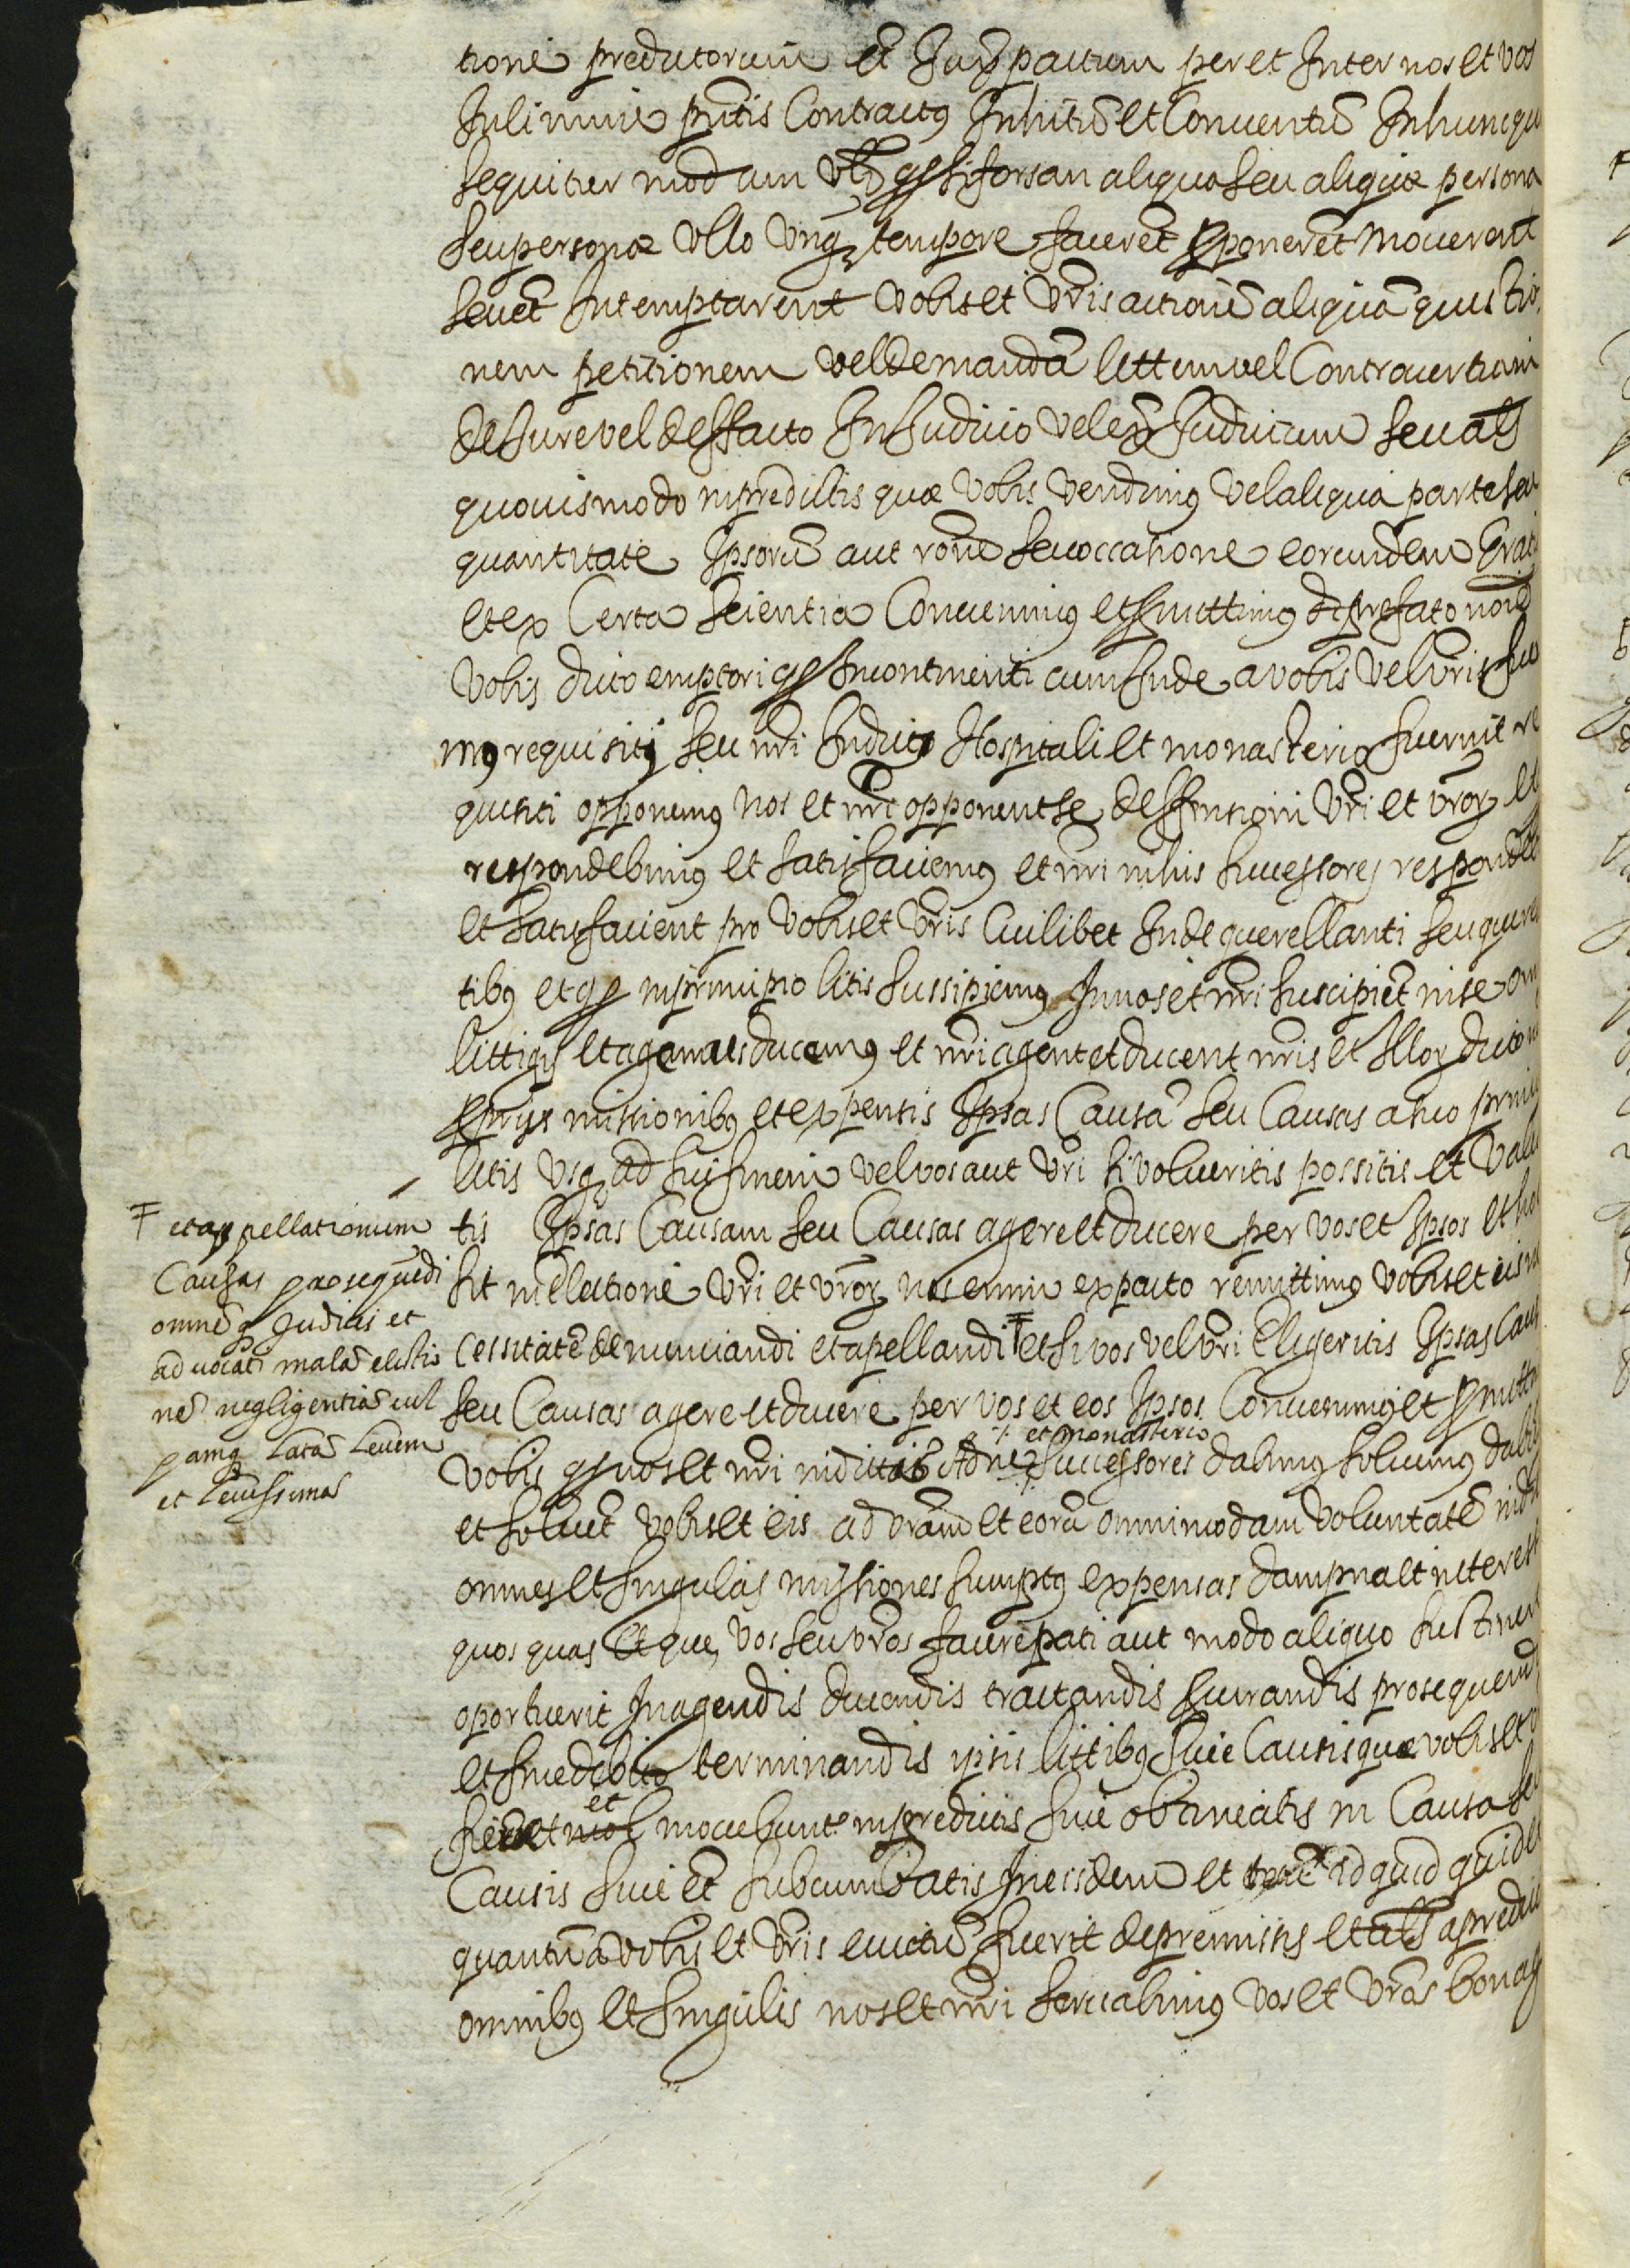 tione predictorum Et Inus pactum per et Inter nos et vos
In limine pntis Contractus Inhitū et Conuentū In hunc qui
sequitur modum vlz qs si forsan aliqua seu aliquæ persona
seu personæ vllo vnq tempore facerēt pponerēt mouerent
seu ēt Intemptarent vobis et vris actionē aliquā questio
nem petitionem vel demandā littem vel Controuertiam
de Iure vel de ffacto In Iudicio vel ex Iudicium seu als
quouismodo in predictis quæ vobis vendimus vel aliqua parte seu
quantitate Ipsorū aut rone seu occasione eorundem Grati
et ex Certa scientia Conuenimus et pmittimus dis prefato noie
vobis dicto emptori qs Incontinenti cum Inde a vobis vel vris fue
mus requisitj seu nri Indicto Hospitali et monasterio fuerint re
quisiti opponemus nos et nri opponent se deffensioni vri et vror et
respondebimus et satisfaciemus et nri in his successores respondebt
et satisfacient pro vobis et vris Cuilibet Inde querellanti seu quere
tibus et qs in principio litis sussipiemus In nos et nri suscipiēt in se om
littigis et agemus ducemus et nri agent et ducent nris et Illor dicto no
pprijs missionibus et expensis Ipsas Causā seu Causas a suo princi
litis vsq ad sui finem vel vos aut vri si volueritis possitis et valea
tis Ipsas Causam seu Causas agere et ducere per vos et Ipsos et hoc
sit in electione vri et vror nos enim ex pacto remittimus vobis et eis ne
cessitatē denunciandi et apellandi ‡ et si vos vel vri Eligeritis Ipsas Caus
seu Causas agere et ducere per vos et eos Ipsos Conuenimus et pmitti
et monasterio
vobis qs nos et nri in dicto successores dabimus soluemus dabū
et soluēt vobis et eis ad vram et eorū omnimodam voluntatē
omnes et singulas missiones sumptus expensas dampna et interesse
quos quas et que vos seu vros facere pati aut modo aliquo sustinere
oportuerit In agendis ducendis tractandis pcurandis prosequend
et fine debito terminandis ipsis littibus siue Causis quæ vobis et v
et
fient mouebunt in predictis siue obtineatis in Causa seu
Causis siue ēt subcumbatis In eisdem et ad quid quide
quantū a vobis et vris euictū fuerit de premissis et als a predic
omnibus et singulis nos et nri seruabimus vos et vros bonas
‡ et appellationum
Causas prosequēdi
omnē q Iudicis et
aduocati malā electio
nē negligentiā cul
pamq Latā Leuem
et Leuissimas